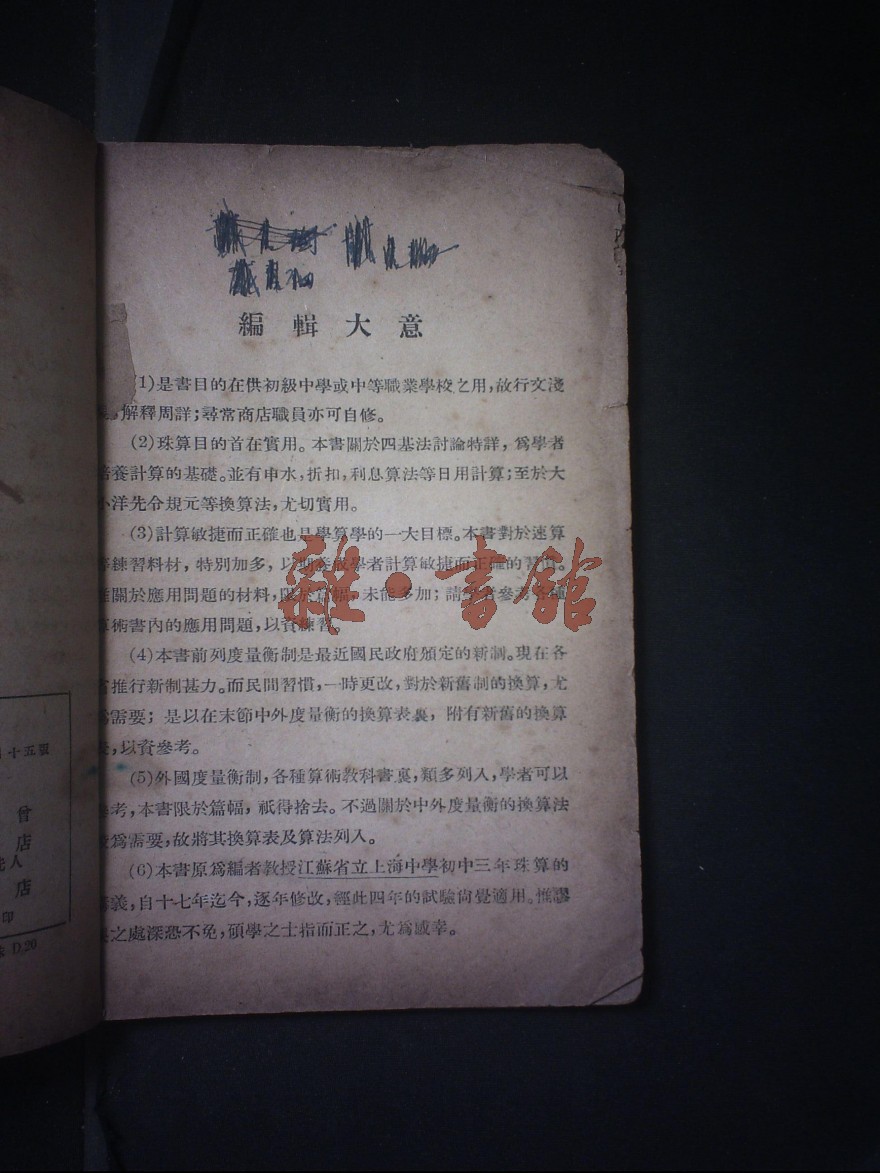 編輯大意
(1)是書目的在供初級中學或中等職業學校之用,故行文淺
解釋周詳;尋常商店職員亦可自修。
(2)珠算目的首在實用。本書關於四基法討論特詳,爲學者
培養計算的基礎。並有申水,折扣,利息算法等日用計算;至於大
小洋先令規元等換算法,尤切實用。
(3)計算敏捷而正確也是學算學的一大目標。本書對於速算
練習料材,特別加多,以期養成學者計算敏捷而正確的習慣。
關於應用問題的材料,限於篇幅,未能多加;請學者參考各種
算術書內的應用問題,以資練習。
(4)本書前列度量衡制是最近國民政府頒定的新制。現在各
省推行新制甚力。而民間習慣,一時更改,對於新舊制的換算,尤
爲需要;是以在末節中外度量衡的換算表裏,附有新舊的換算
,以資參考。
(5)外國度量衡制,各種算術教科書裏,類多列入,學者可以
參考,本書限於篇幅,祇得捨去。不過關於中外度量衡的換算法
爲需要,故將其換算表及算法列入。
(6)本書原爲編者教授江蘇省立上海中學初中三年珠算的
講義,自十七年迄今,逐年修改,經此四年的試驗尙覺適用。惟謬
之處深恐不免,碩學之士指而正之,尤爲感幸。
雜·書館
十五號
曾
店
人
店
印
D.20